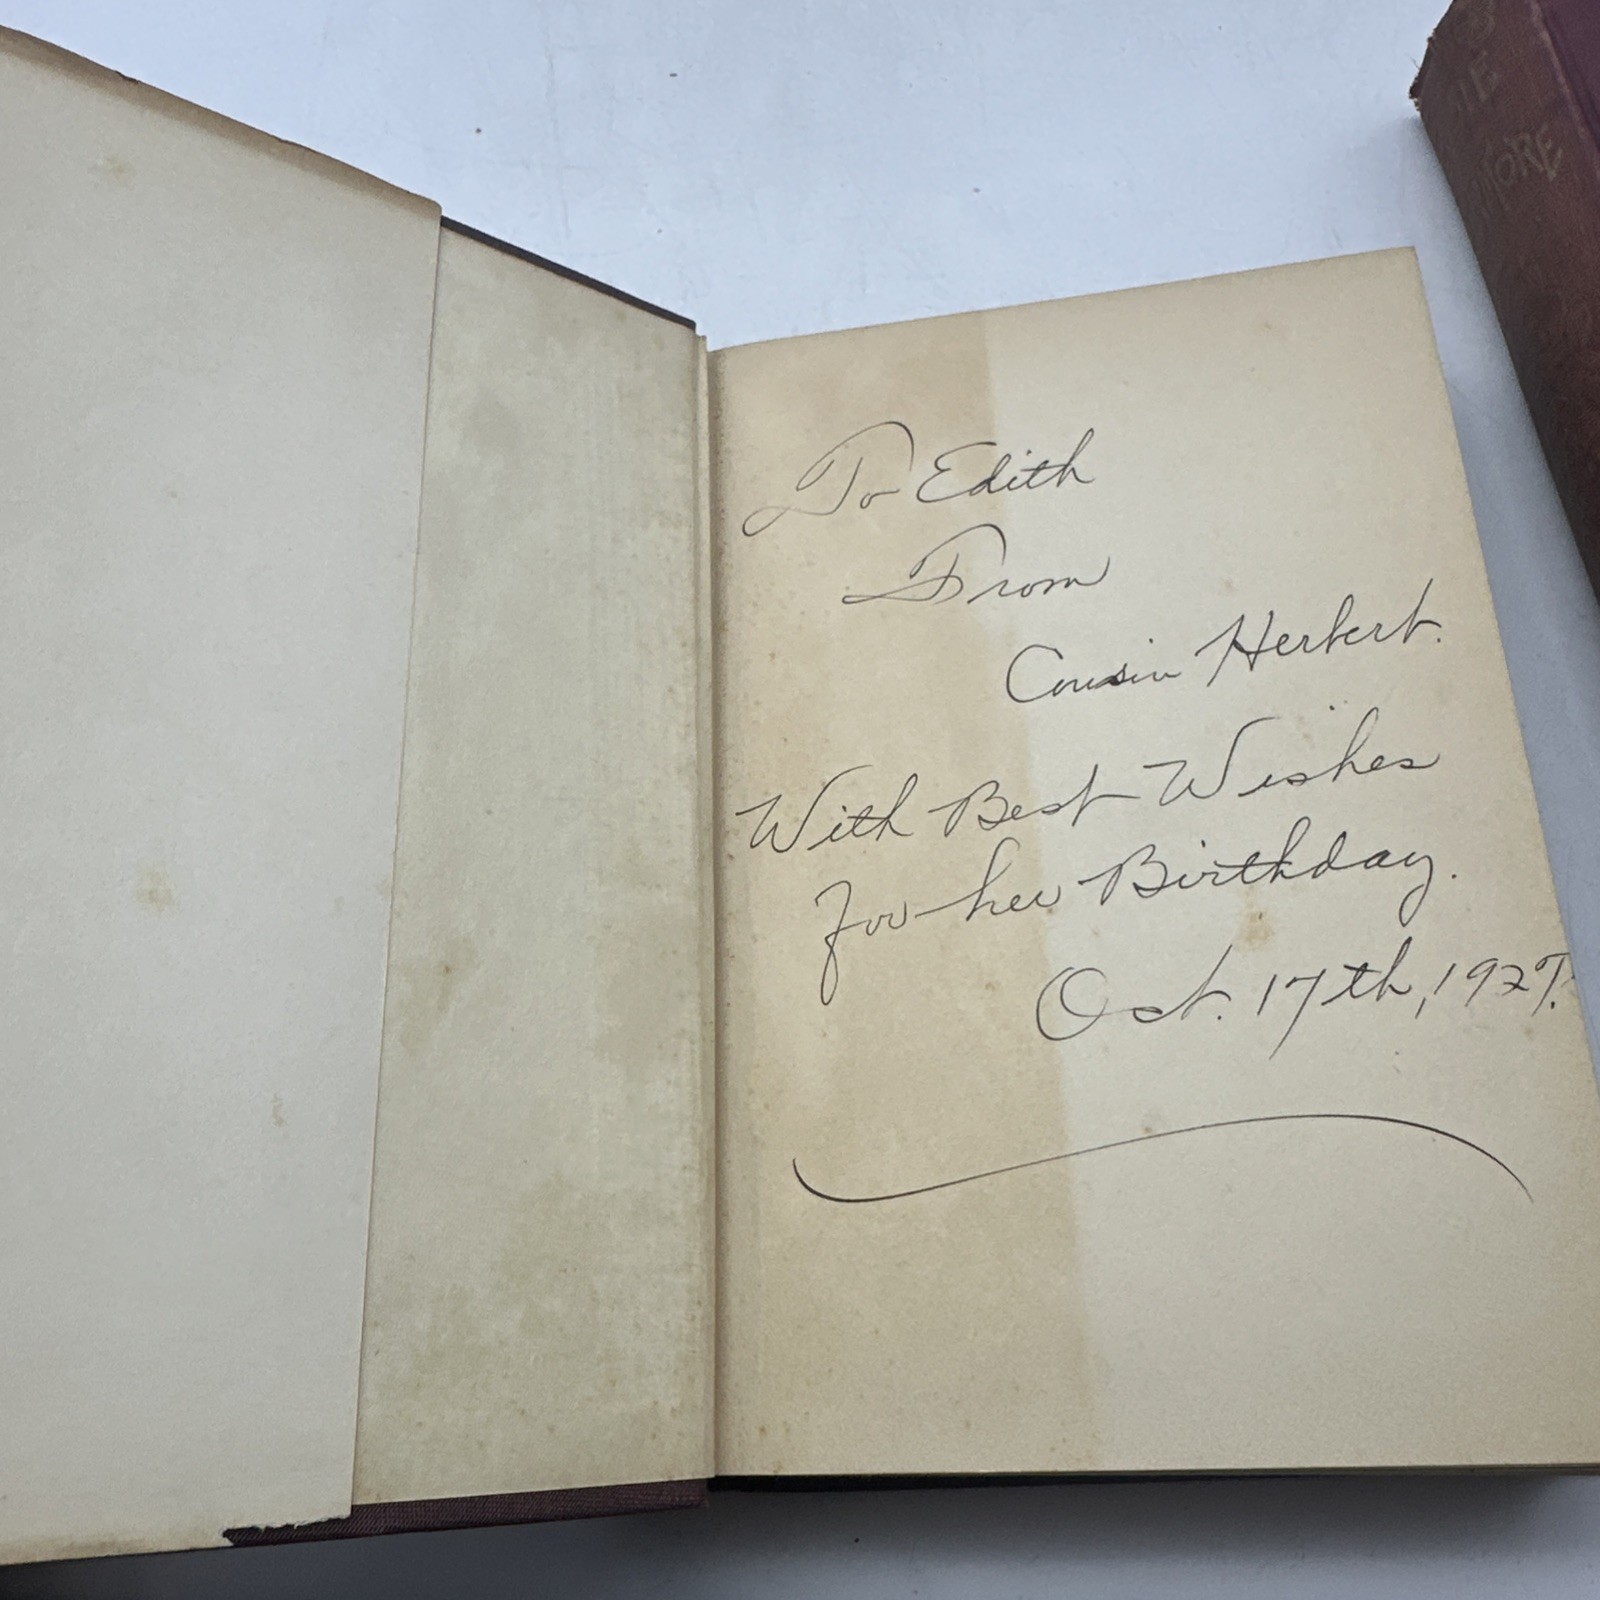 To Edith
From
Cousin Herbert.
With Best Wishes
For her Birthday.
Oct. 17th, 1927.